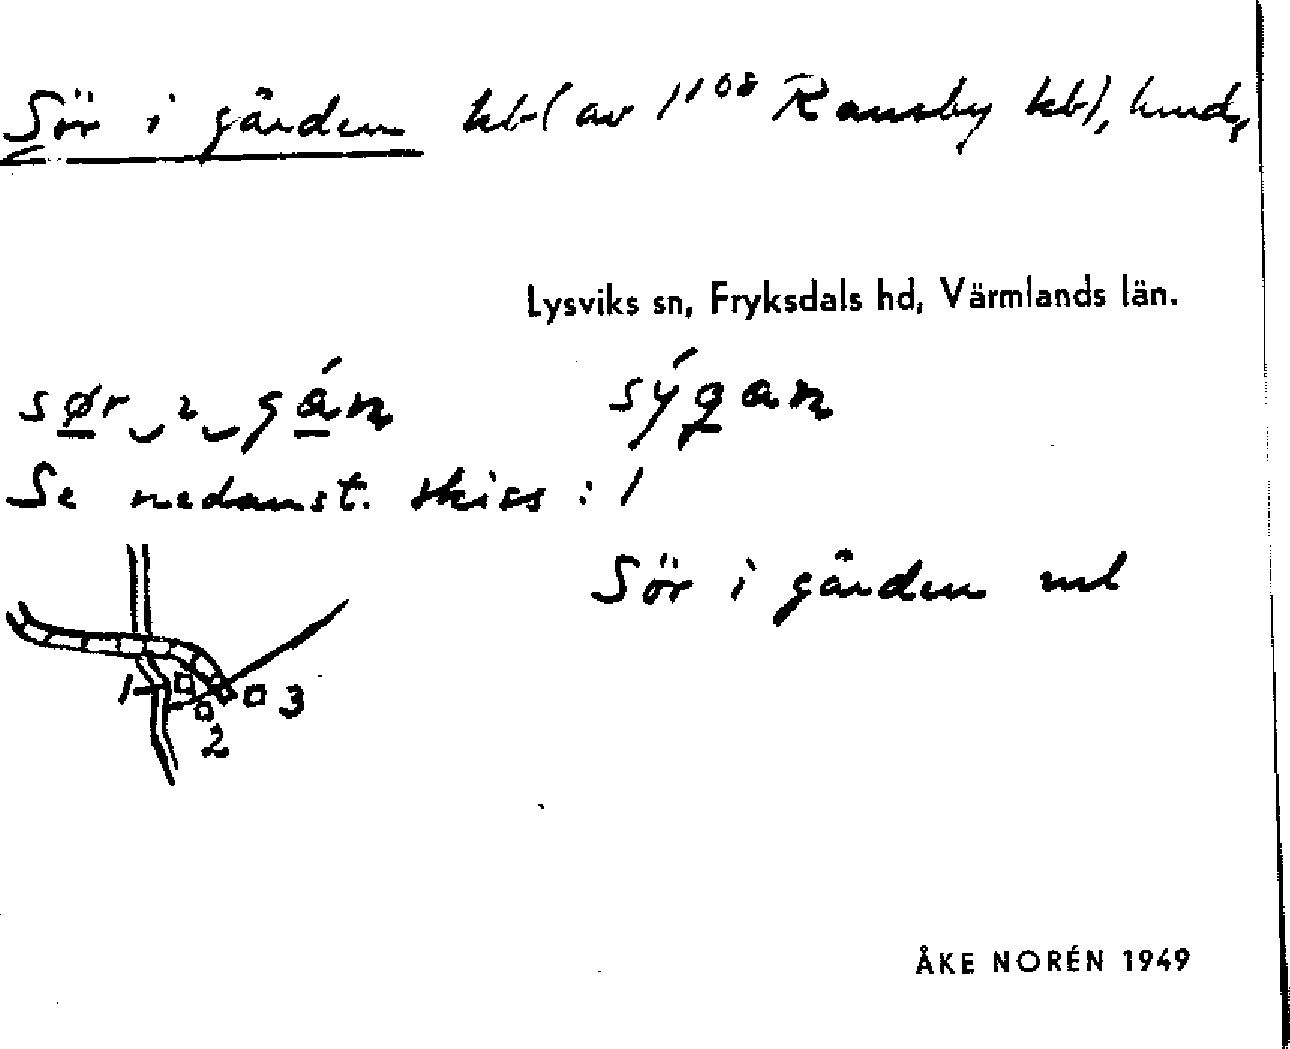 Sör i gården hb (av 1¹⁰⁸ Ransby hb), hmd,
Lysviks sn, Fryksdals hd, Värmlands län.
sør ı gán sýgan
Se nedanst. skiss : 1
Sör i gården ml
1
3
2
ÅKE NORÉN 1949